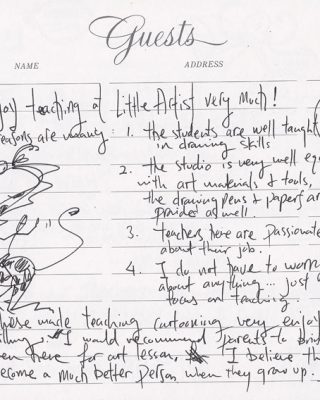 Guests
NAME ADDRESS
teaching at Little Artist very much!
reasons are many: 1. the students are well taught
in drawing skills
2. the studio is very well
with art materials & tools,
the drawing pens & papers are
as well.
3. Teachers here are passionate
about their job.
4. I do not have to worry
about anything... just
focus on teaching.
made teaching cartooning very
I would recommend parents to
here for art lesson, I believe
become a much better person when they grow up.